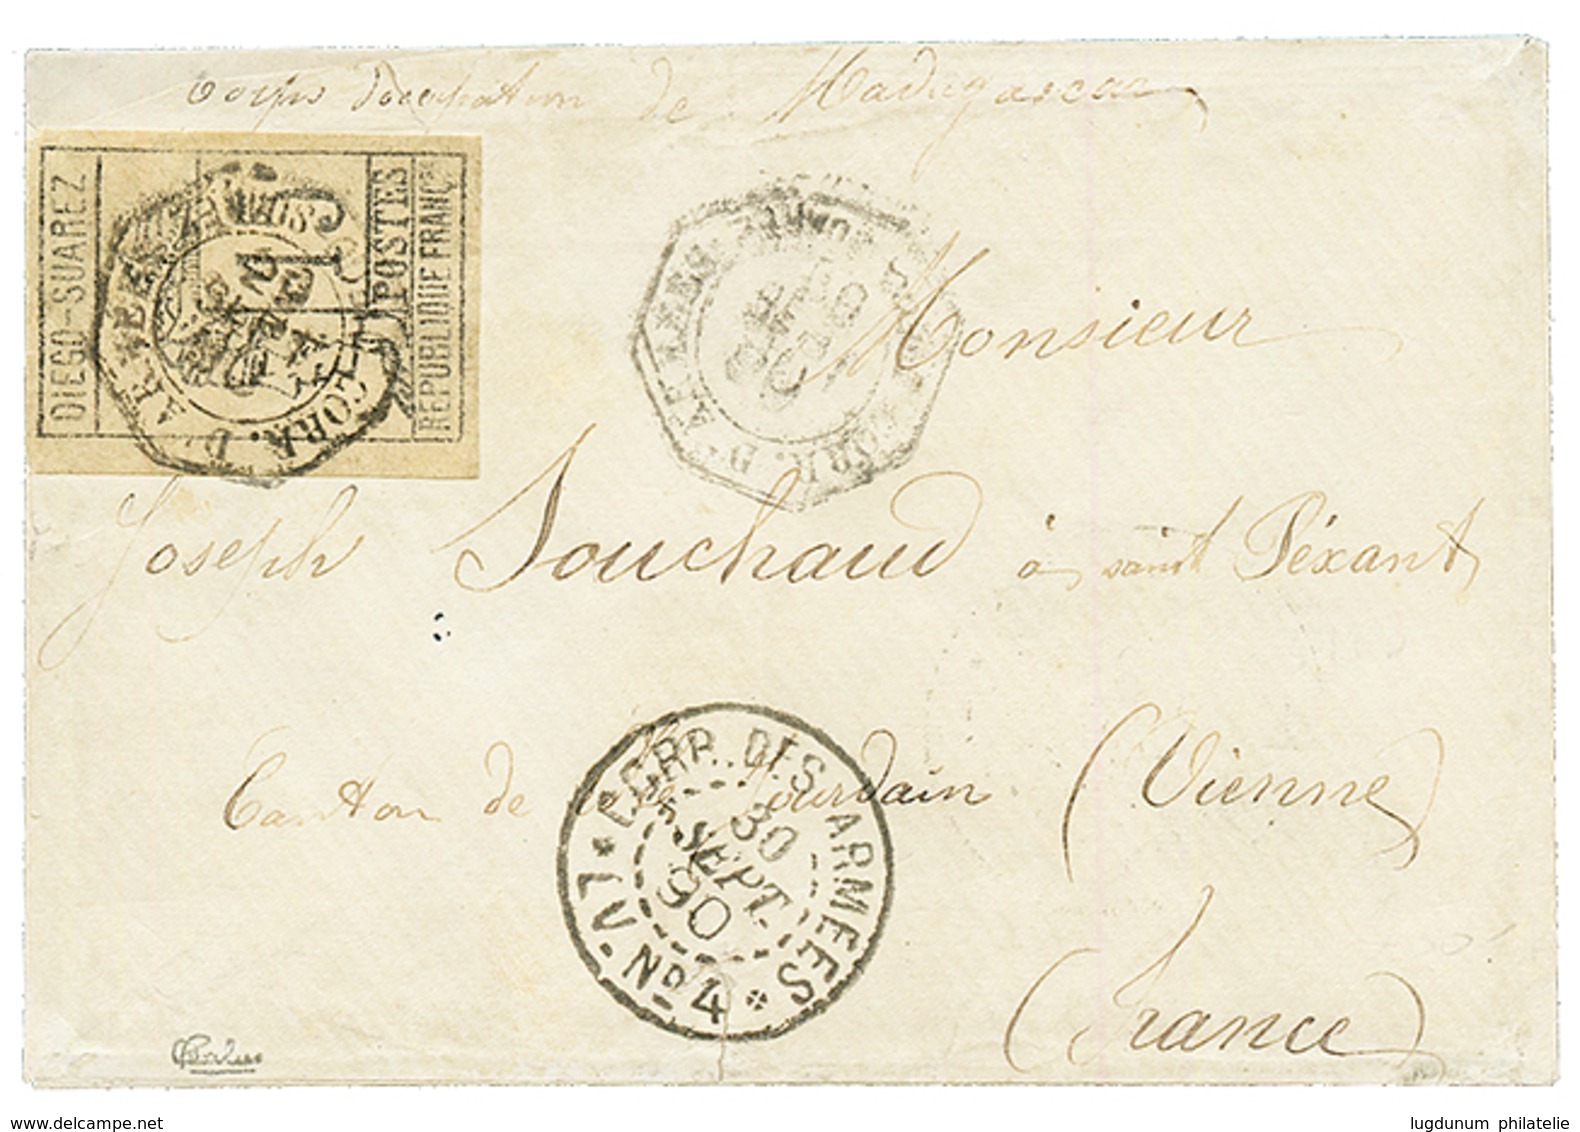 Corps d'occupation de Madagascar
DIEGO-SUAREZ
POSTES
REPUBLIQUE FRANÇSE
CORR. D'ARMEES
CORR. D'ARMEES
Monsieur
Joseph Souchaud à saint Péxant
Canton de Jourdain (Vienne)
CORR. DES ARMEES
30
SEPT.
90
LV. No 4
(France)
delcampe.net
lugdunum philatelie